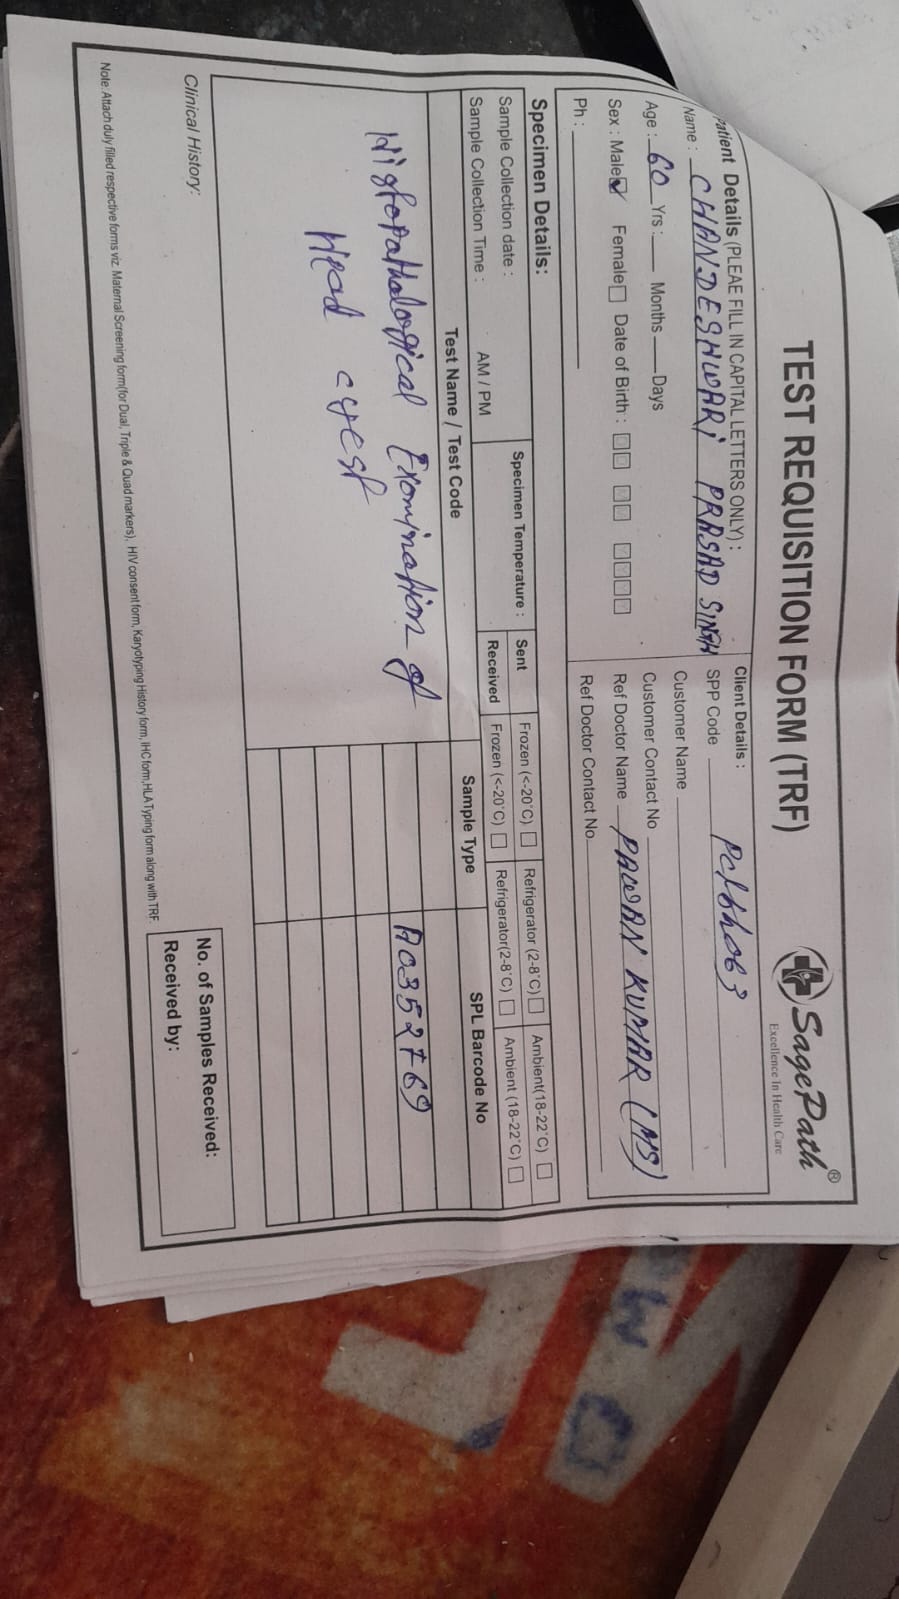 TEST REQUISITION FORM (TRF)
SagePath®
Excellence In Health Care
Patient Details (PLEAE FILL IN CAPITAL LETTERS ONLY) :
Name : CHANDESHWARI PRASAD SINGH
Age : 60 Yrs : Months Days
Sex : Male☑ Female☐ Date of Birth : ☐☐ ☐☐ ☐☐☐☐
Ph :
Client Details :
SPP Code
Customer Name
Customer Contact No
Ref Doctor Name PAWAN KUMAR (MS)
Ref Doctor Contact No
Specimen Details:
Sample Collection date :
Sample Collection Time : AM / PM
Specimen Temperature :
Sent Frozen (<-20°C) ☐ Refrigerator (2-8°C) ☐ Ambient(18-22°C) ☐
Received Frozen (<-20°C) ☐ Refrigerator(2-8°C) ☐ Ambient (18-22°C) ☐
Test Name / Test Code Sample Type SPL Barcode No
Histopathological Examination of A0352769
Head cyest
Clinical History:
No. of Samples Received:
Received by:
Note. Attach duly filled respective forms viz. Maternal Screening form(for Dual, Triple & Quad markers), HIV consent form, Karyotyping History form, IHC form,HLA Typing form along with TRF